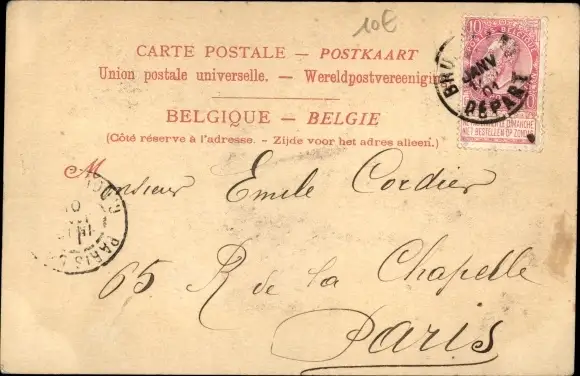 10€
CARTE POSTALE — POSTKAART
Union postale universelle. — Wereldpostvereeniging
BELGIQUE — BELGIE
(Côté réserve à l'adresse. - Zijde voor het adres alleen.)
10
JANV
01
DEPART
NE PAS LIVRER LE DIMANCHE
NIET BESTELLEN OP ZONDAG
Monsieur Emile Cordier
65 R de la Chapelle
Paris
PARIS